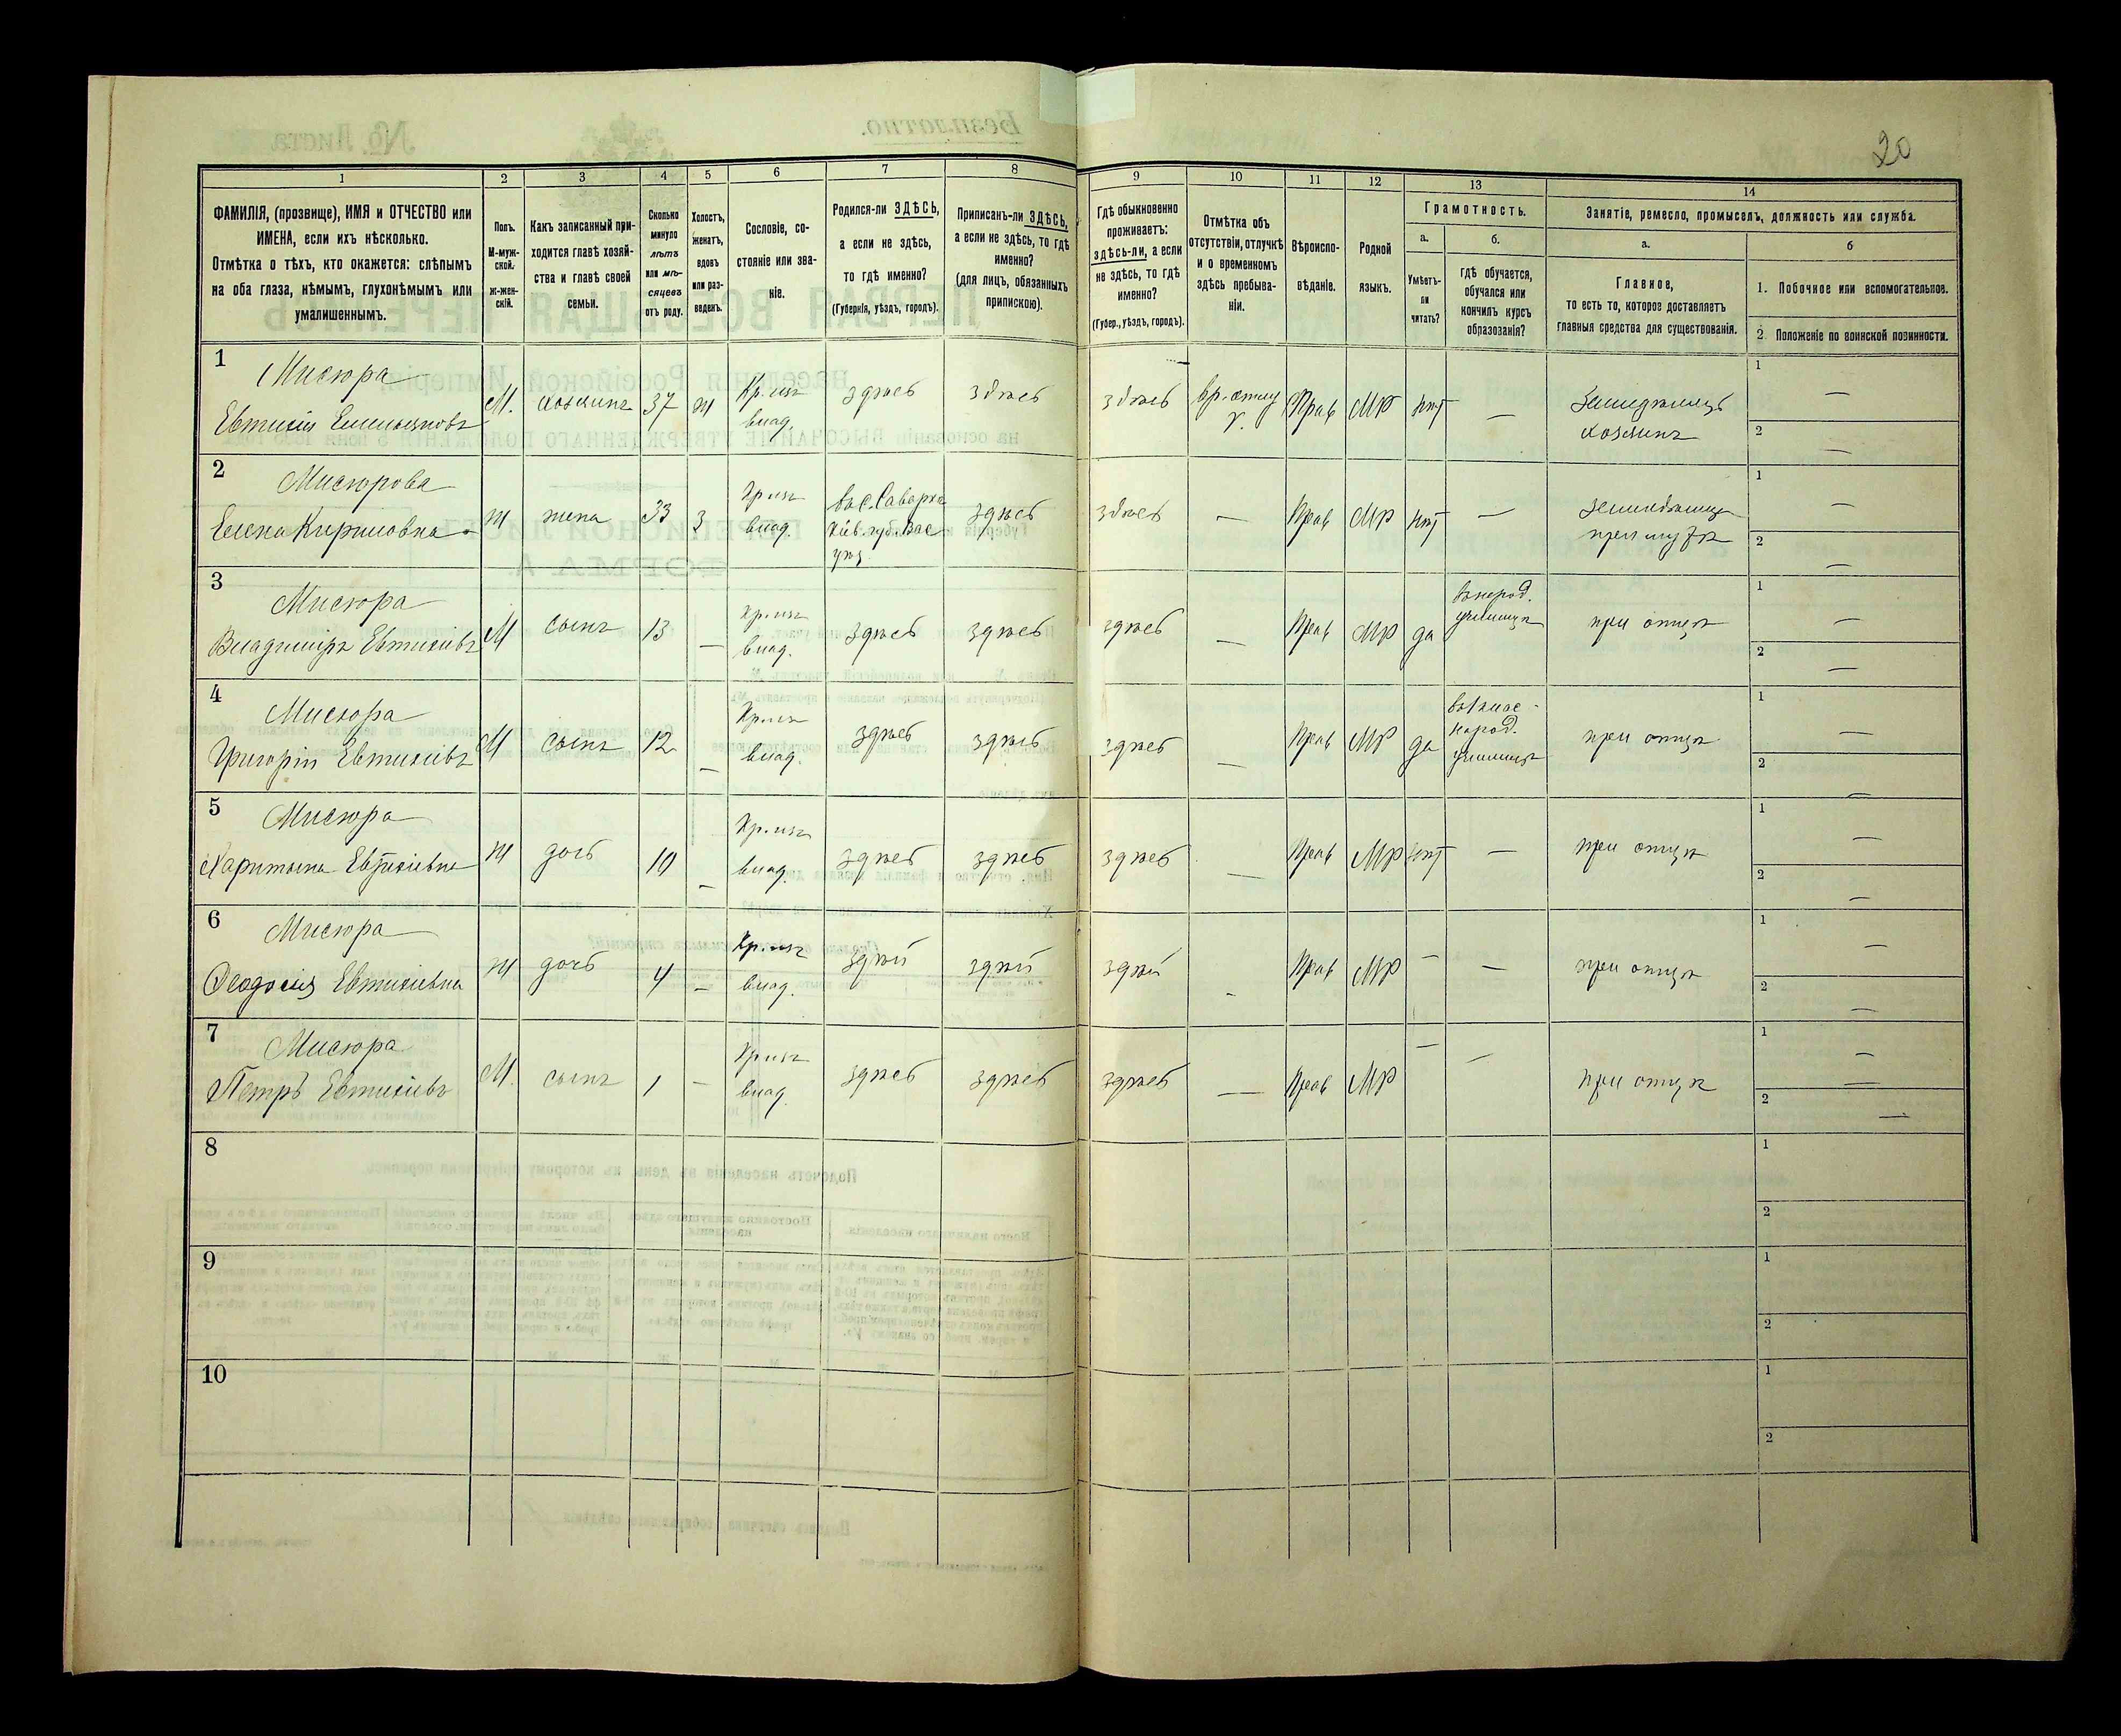 20
1
2
3
4
5
6
7
8
9
10
11
12
13
14
ФАМИЛІЯ, (прозвище), ИМЯ и ОТЧЕСТВО или
ИМЕНА, если ихъ нѣсколько.
Отмѣтка о тѣхъ, кто окажется: слѣпымъ
на оба глаза, нѣмымъ, глухонѣмымъ или
умалишеннымъ.
Полъ.
М-муж-
ской.
ж-жен-
скій.
Какъ записанный при-
ходится главѣ хозяй-
ства и главѣ своей
семьи.
Сколько
минуло
лѣтъ
или мѣ-
сяцевъ
отъ роду.
Холостъ,
женатъ,
вдовъ
или раз-
веденъ.
Сословіе, со-
стояніе или зва-
ніе.
Родился-ли ЗДѢСЬ,
а если не здѣсь,
то гдѣ именно?
(Губернія, уѣздъ, городъ).
Приписанъ-ли ЗДѢСЬ,
а если не здѣсь, то гдѣ
именно?
(для лицъ, обязанныхъ
припискою).
Гдѣ обыкновенно
проживаетъ:
здѣсь-ли, а если
не здѣсь, то гдѣ
именно?
(Губер., уѣздъ, городъ).
Отмѣтка объ
отсутствіи, отлучкѣ
и о временномъ
здѣсь пребыва-
ніи.
Вѣроиспо-
вѣданіе.
Родной
языкъ.
Грамотность.
а.
Умѣетъ-
ли
читать?
б.
гдѣ обучается,
обучался или
кончилъ курсъ
образованія?
Занятіе, ремесло, промыселъ, должность или служба.
а.
Главное,
то есть то, которое доставляетъ
главныя средства для существованія.
б
1. Побочное или вспомогательное.
2. Положеніе по воинской повинности.
1
Мисюра
Евтихій Емельяновъ
М. хозяинъ 37 ж
Кр. изъ
влад.
здѣсь здѣсь здѣсь
Прав МР нѣт —
Земледѣлецъ
хозяинъ
1 —
2 —
2
Мисюрова
Елена Кириловна
ж жена 33 з
Кр. изъ
влад.
Кіев. губ. Вас
уѣз.
здѣсь здѣсь — Прав МР нѣт —
при мужѣ
1 —
2 —
3
Мисюра
Владиміръ Евтихіевъ
М сынъ 13 —
Кр. изъ
влад.
здѣсь здѣсь здѣсь — Прав МР да
въ народ.
училищѣ
при отцѣ
1 —
2 —
4
Мисюра
Григорій Евтихіевъ
М сынъ 12 —
Кр. изъ
влад.
здѣсь здѣсь здѣсь — Прав МР да
народ.
училищѣ
при отцѣ
1 —
2 —
5
Мисюра
Харитина Евтихіевна
ж дочь 10 —
Кр. изъ
влад.
здѣсь здѣсь здѣсь — Прав МР нѣт — при отцѣ
1 —
2 —
6
Мисюра
Ѳеодосія Евтихіевна
ж дочь 4 —
Кр. изъ
влад.
здѣсь здѣсь здѣсь - Прав МР — — при отцѣ
1 —
2 —
7
Мисюра
Петръ Евтихіевъ
М. сынъ 1 —
Кр. изъ
влад.
здѣсь здѣсь здѣсь — Прав МР — — при отцѣ
1 —
2 —
8
1
2
9
1
2
10
1
2